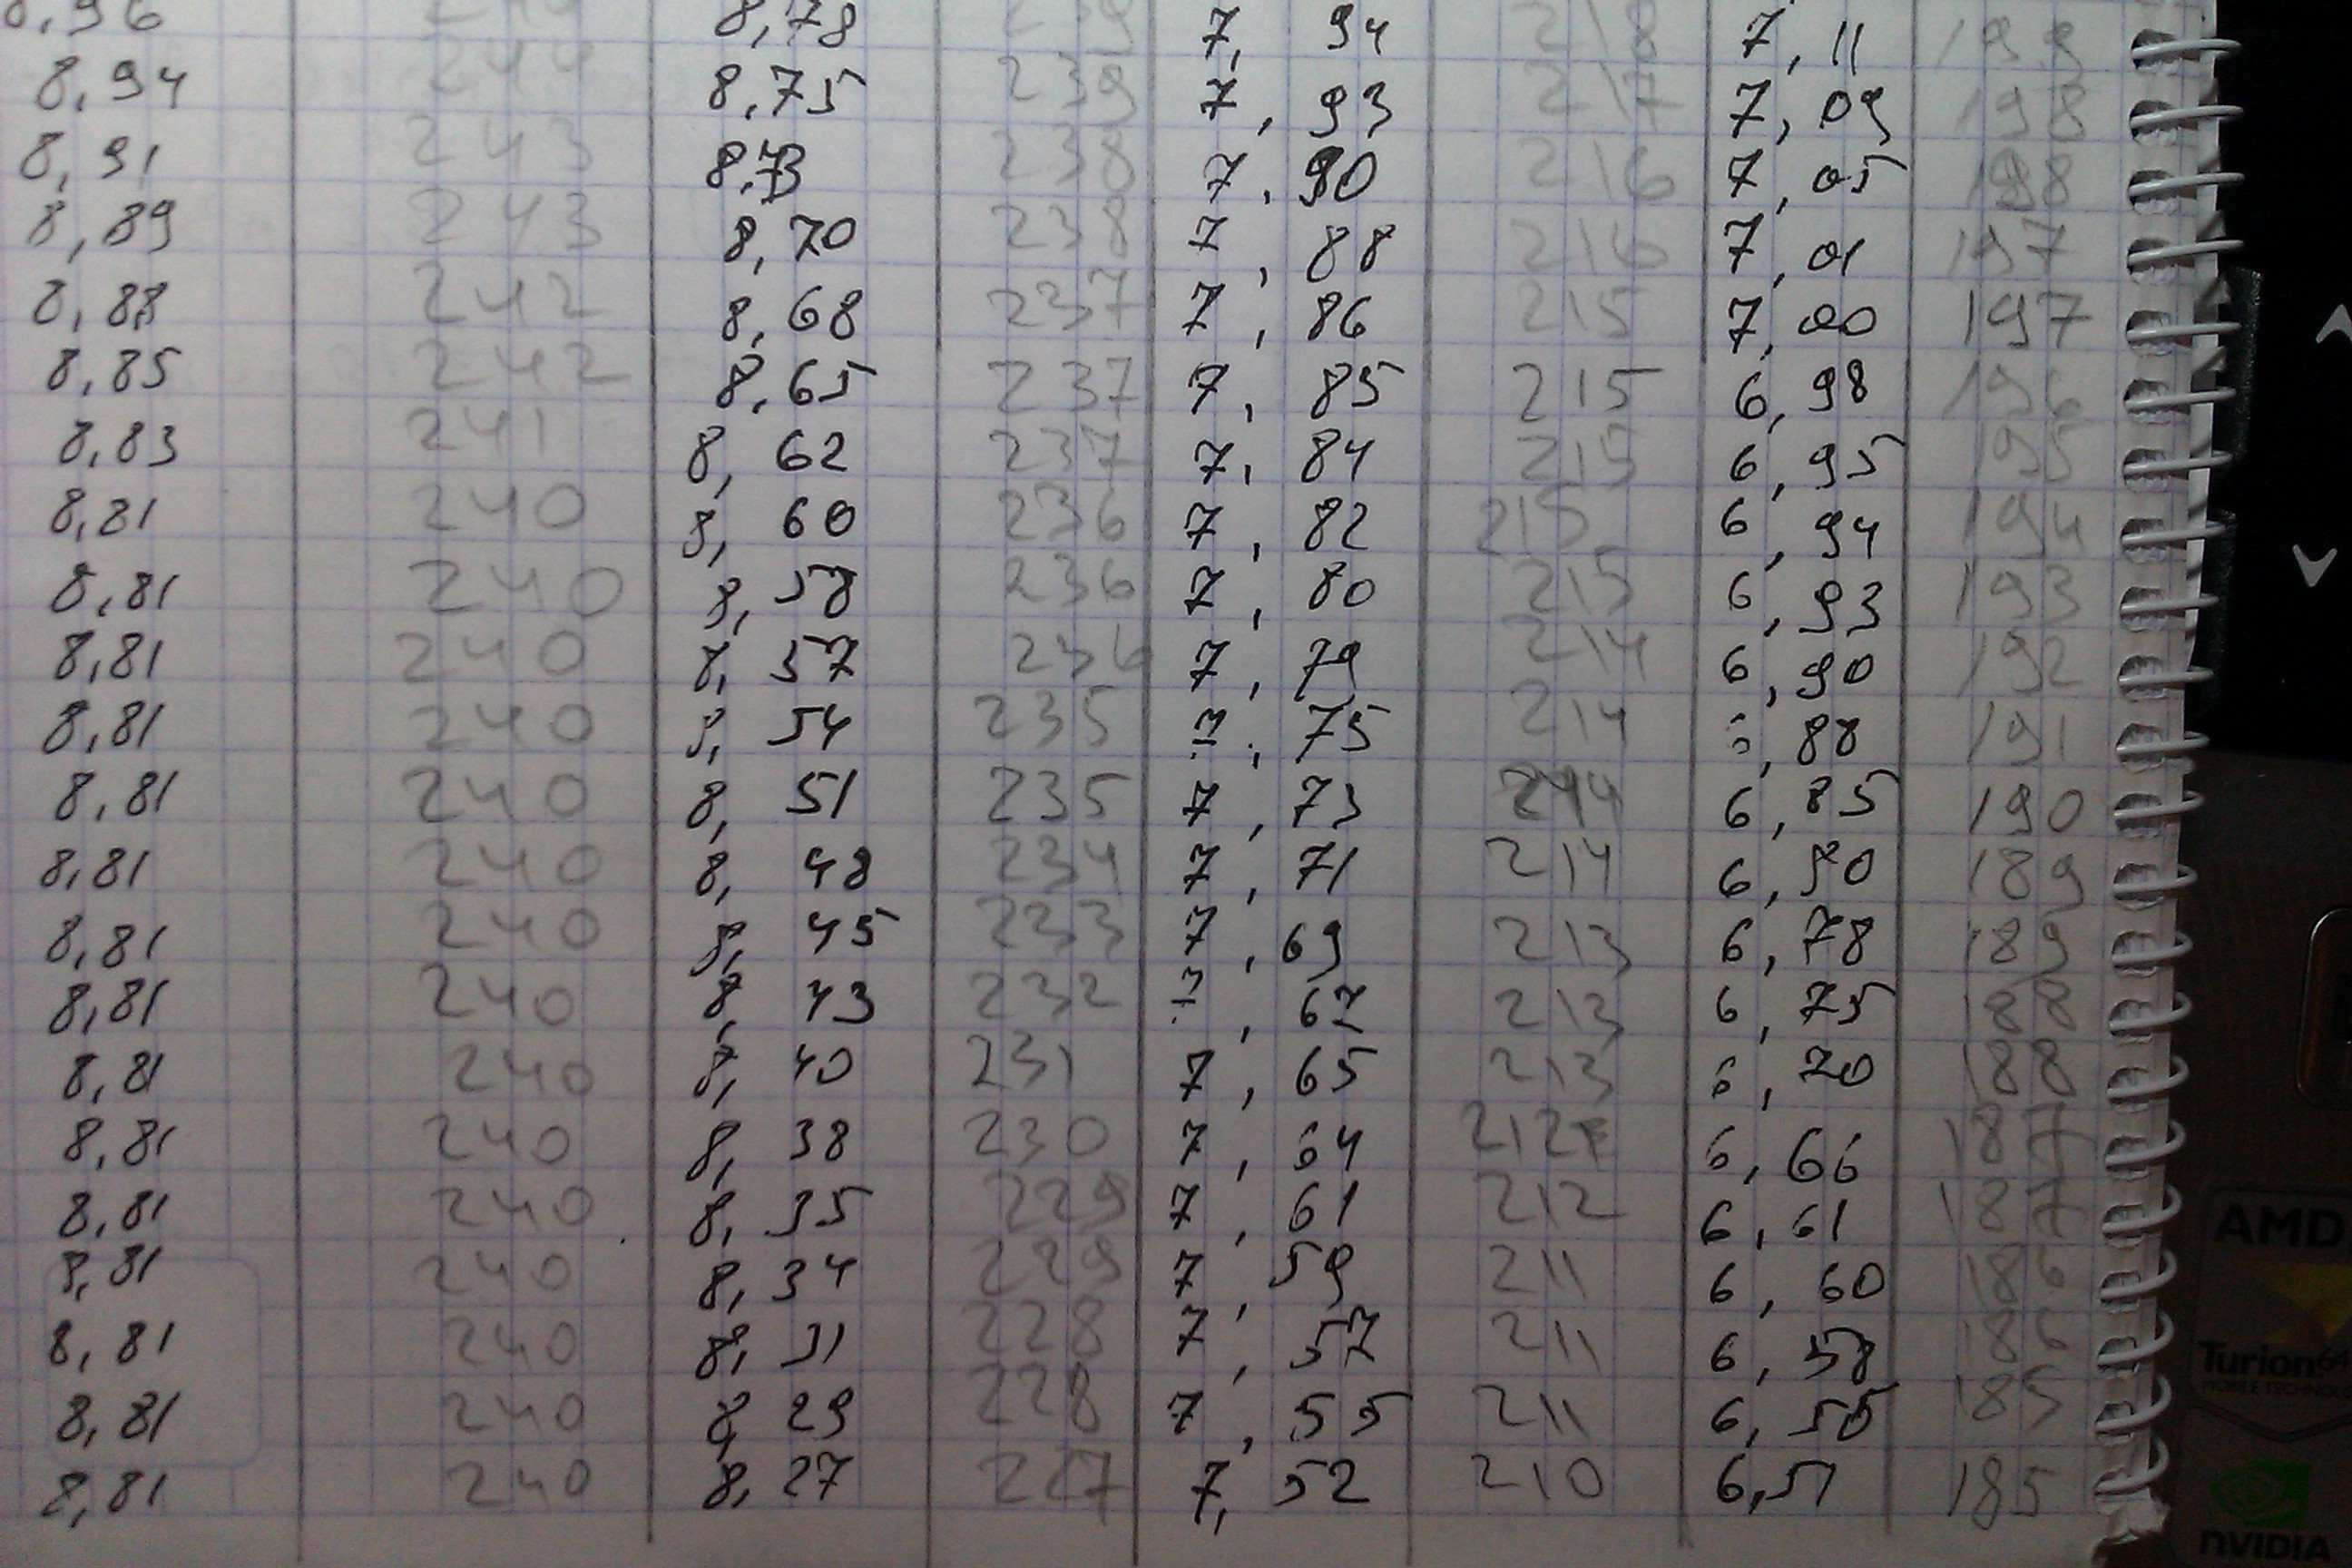 8,96 244 8,78 239 7, 94 218 7,11 199
8,94 244 8,75 239 7, 93 217 7,09 198
8,91 243 8,73 238 7,90 216 7,05 198
8,89 243 8,70 238 7,88 216 7,01 197
8,88 242 8,68 237 7,86 215 7,00 197
8,85 242 8,65 237 7,85 215 6,98 196
8,83 241 8,62 237 7,84 215 6,95 195
8,81 240 8,60 236 7,82 215 6,94 194
8,81 240 8,58 236 7,80 215 6,93 193
8,81 240 8,57 236 7,79 214 6,90 192
8,81 240 8,54 235 7,75 214 6,88 191
8,81 240 8,51 235 7,73 214 6,85 190
8,81 240 8,48 234 7,71 214 6,80 189
8,81 240 8,45 233 7,69 213 6,78 189
8,81 240 8,43 232 7,67 213 6,75 188
8,81 240 8,40 231 7,65 213 6,70 188
8,81 240 8,38 230 7,64 212 6,66 187
8,81 240 8,35 229 7,61 212 6,61 187
8,81 240 8,34 229 7,59 211 6,60 186
8,81 240 8,31 228 7,57 211 6,58 186
8,81 240 8,29 228 7,55 211 6,55 185
8,81 240 8,27 227 7,52 210 6,51 185
AMD
Turion64
NVIDIA